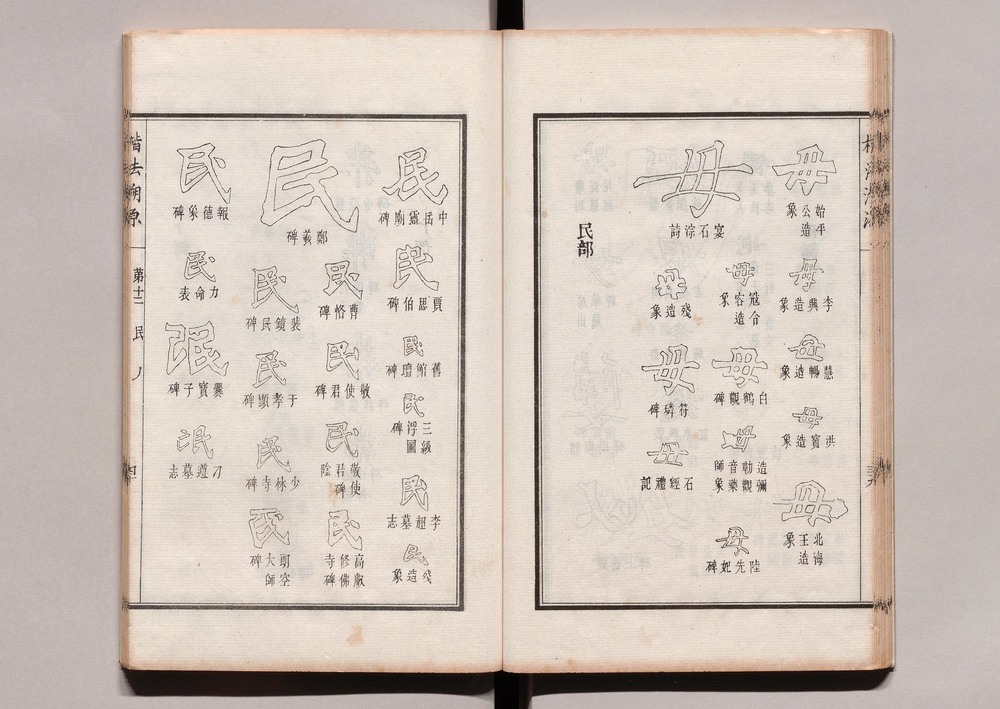 毋 始平公造象
毋 李興造象
毋 慧暢造象
毋 洪寶造象
毋 北海王造象
毋 宴石淙詩
毋 寇合容造象
毋 白鶴觀碑
毋 造彌勒觀音藥師象
毋 陸先妃碑
毋 殘造象
毋 符璘碑
毋 石經禮記
民部
民 中岳靈廟碑
民 賈思伯碑
民 舊館壇碑
民 三級浮圖碑
民 李超墓志
民 殘造象
民 鄭羲碑
民 曹恪碑
民 敬使君碑
民 敬使君碑陰
民 高叡修佛寺碑
民 裴鏡民碑
民 于孝顯碑
民 少林寺碑
民 明空大師碑
民 報德象碑
民 力命表
民 爨寶子碑
民 刁遵墓志
第十二 民 丿